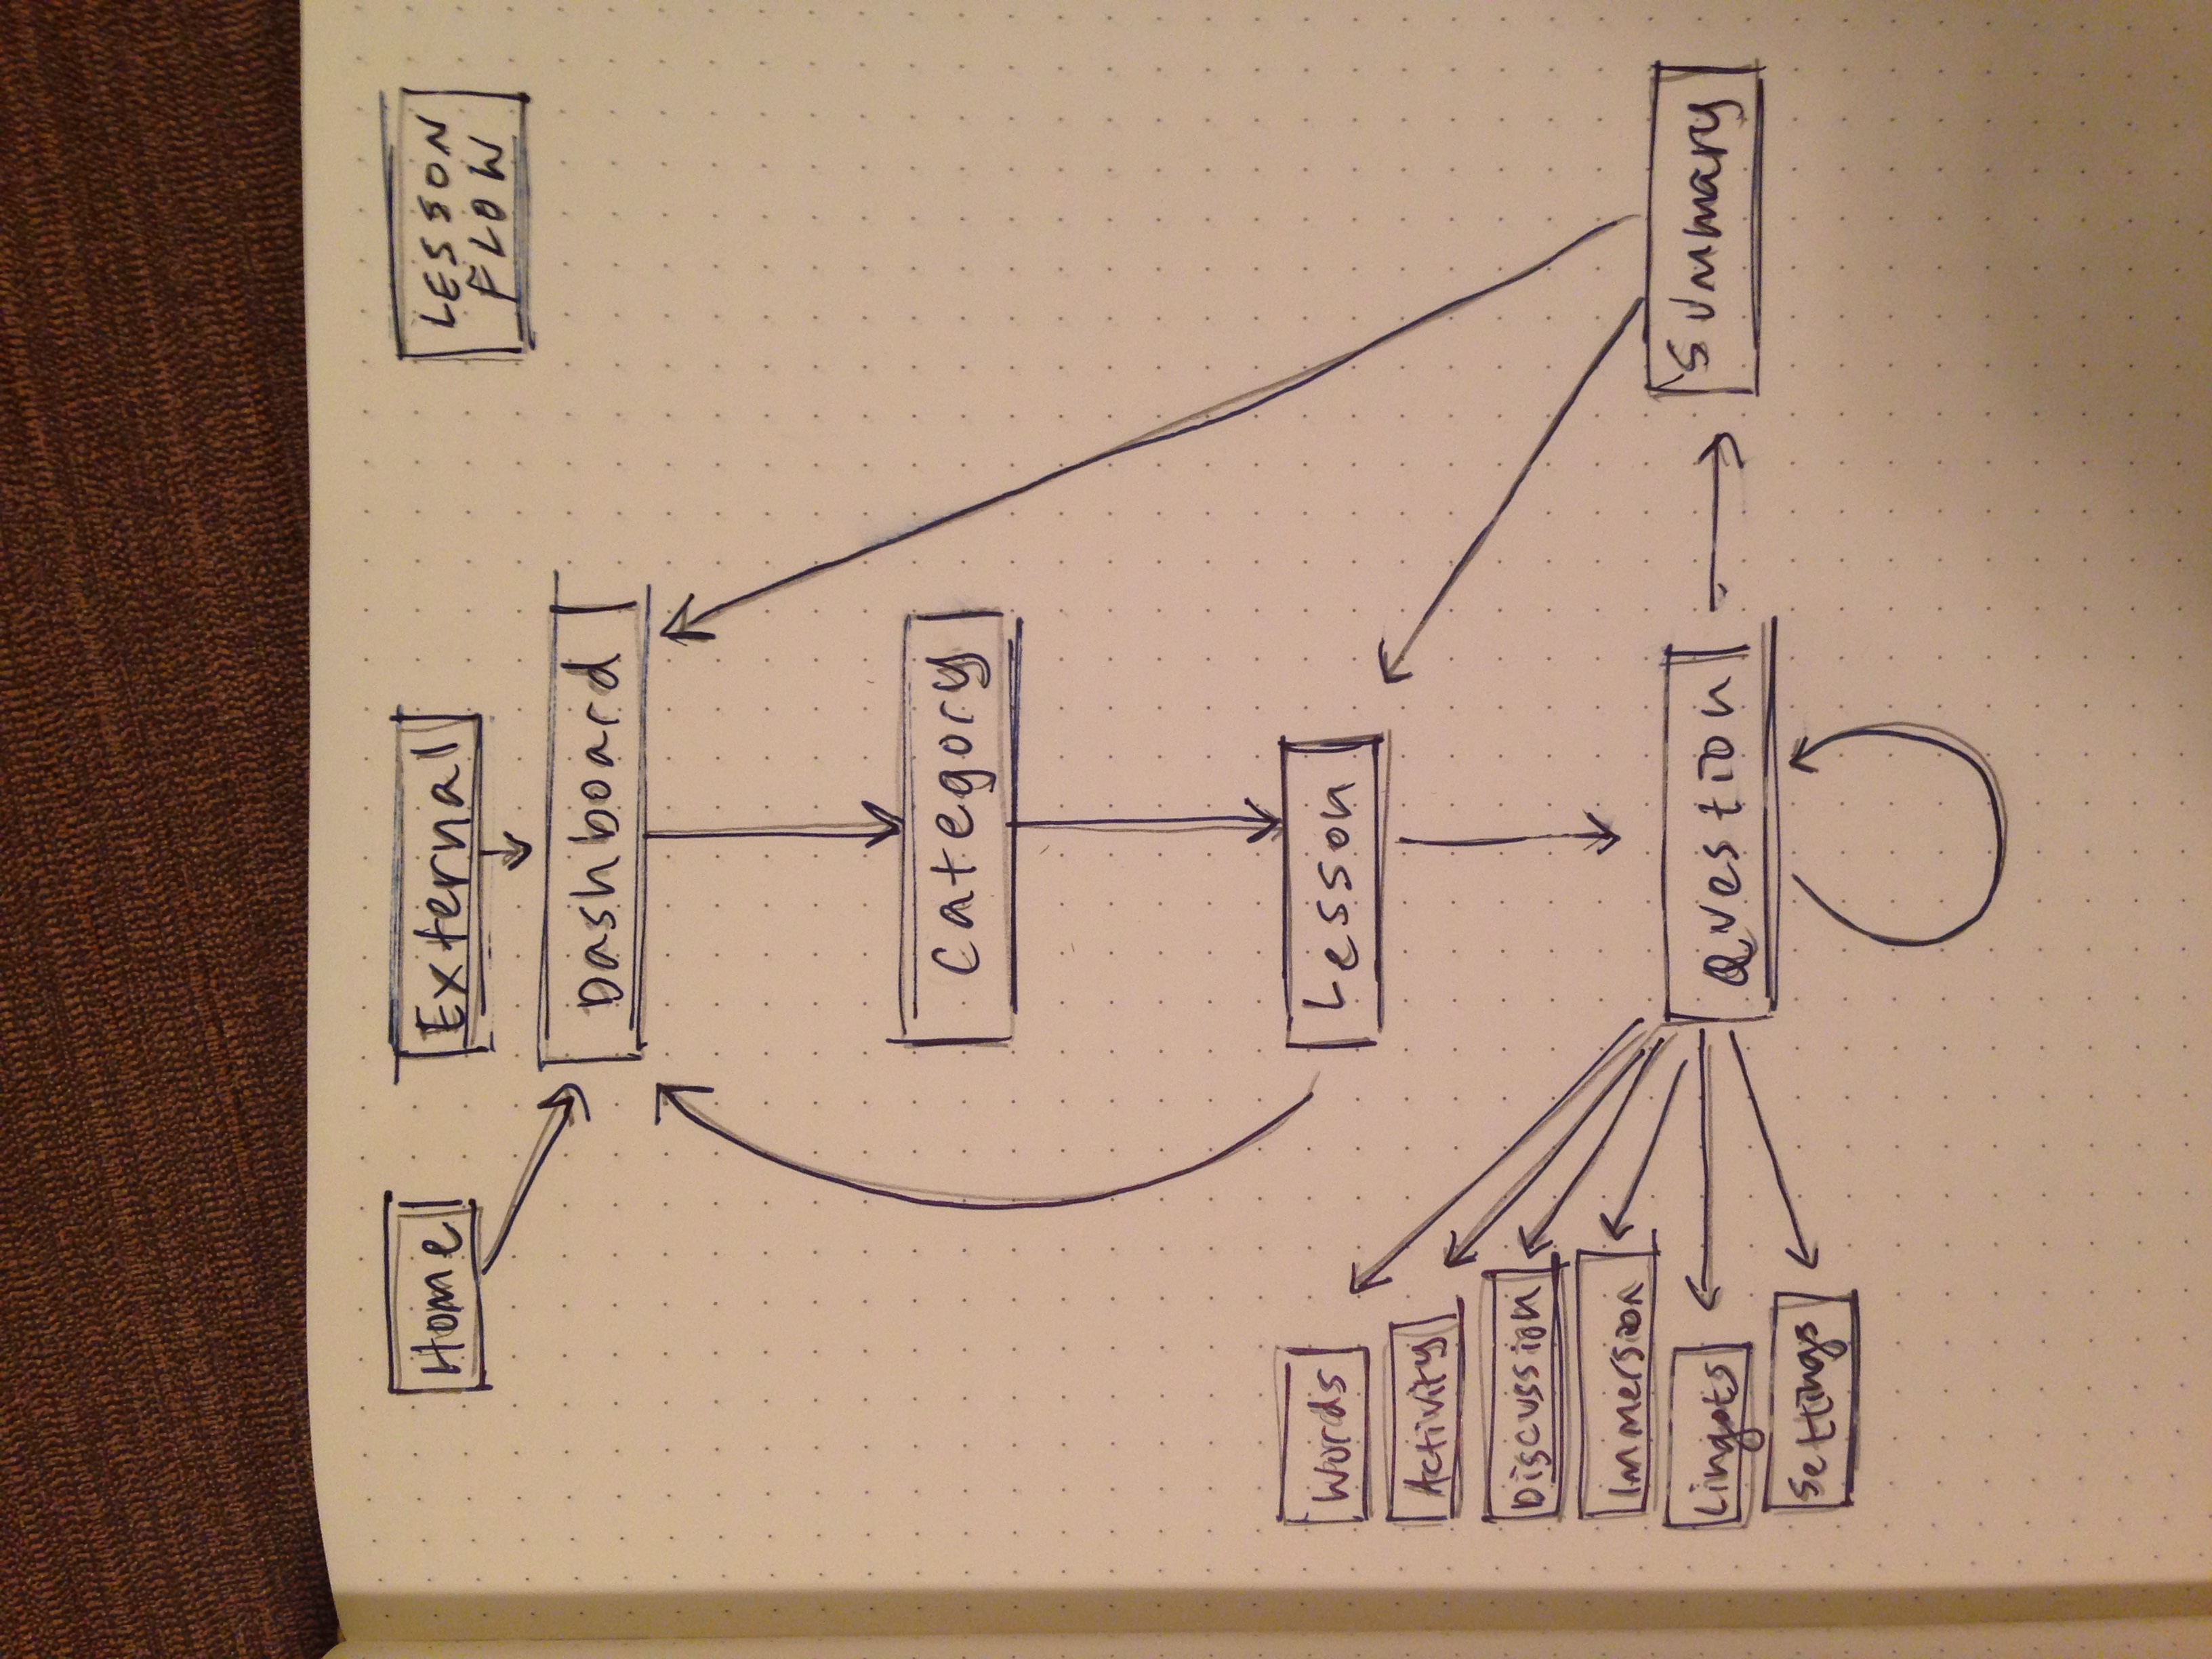 Home
External
LESSON
FLOW
Dashboard
Category
Lesson
Words
Activity
Discussion
Immersion
Lingots
Settings
Question
Summary